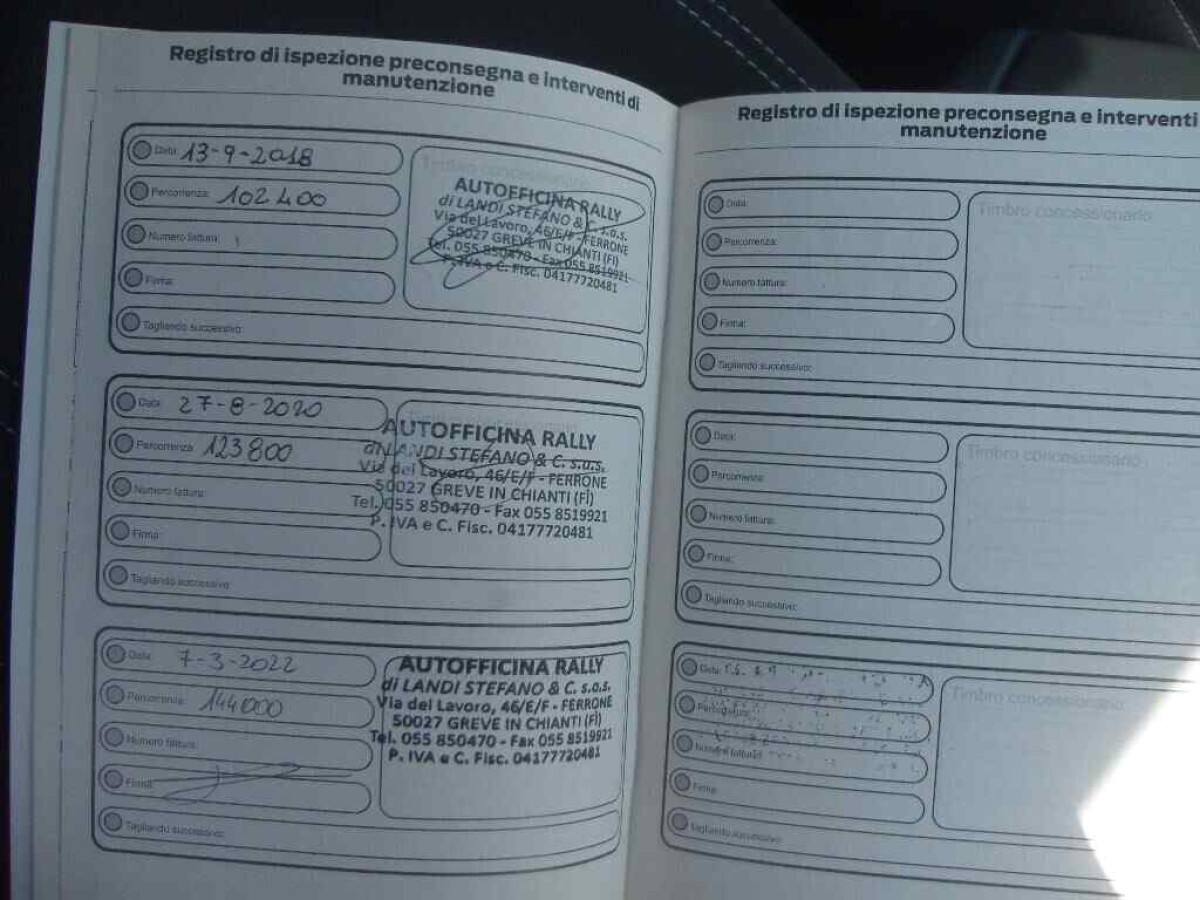 Registro di ispezione preconsegna e interventi di
manutenzione
Data: 13-9-2018
Percorrenza: 102400
Numero fattura:
Firma:
Tagliando successivo:
Timbro concessionario
AUTOFFICINA RALLY
di LANDI STEFANO & C. s.a.s.
Via del Lavoro, 46/E/F - FERRONE
50027 GREVE IN CHIANTI (FI)
Tel. 055 850470 - Fax 055 8519921
P. IVA e C. Fisc. 04177720481
Data: 27-8-2020
Percorrenza: 123800
Numero fattura:
Firma:
Tagliando successivo:
AUTOFFICINA RALLY
di LANDI STEFANO & C. s.a.s.
Via del Lavoro, 46/E/F - FERRONE
50027 GREVE IN CHIANTI (FI)
Tel. 055 850470 - Fax 055 8519921
P. IVA e C. Fisc. 04177720481
Data: 7-3-2022
Percorrenza: 144000
Numero fattura:
Firma:
Tagliando successivo:
AUTOFFICINA RALLY
di LANDI STEFANO & C. s.a.s.
Via del Lavoro, 46/E/F - FERRONE
50027 GREVE IN CHIANTI (FI)
Tel. 055 850470 - Fax 055 8519921
P. IVA e C. Fisc. 04177720481
Registro di ispezione preconsegna e interventi
manutenzione
Data:
Percorrenza:
Numero fattura:
Firma:
Tagliando successivo:
Timbro concessionario
Data:
Percorrenza:
Numero fattura:
Firma:
Tagliando successivo:
Timbro concessionario
Data:
Percorrenza:
Numero fattura:
Firma:
Tagliando successivo:
Timbro concessionario